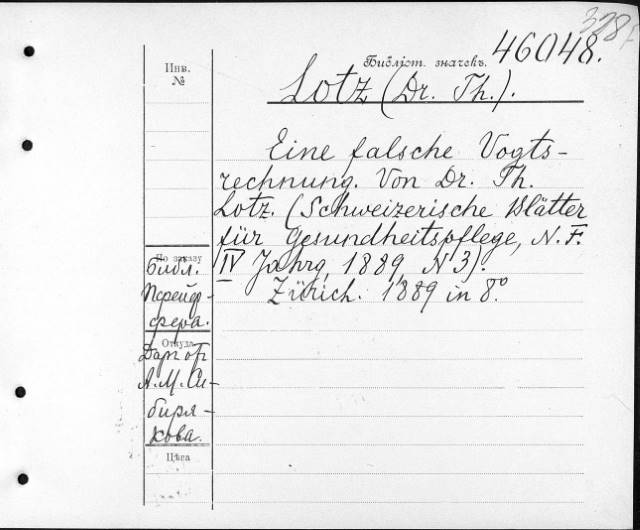 328
Библіот. значекъ. 46048.
Инв.
№
Lotz (Dr. Th.).
Eine falsche Vogts-
rechnung. Von Dr. Th.
Lotz. (Schweizerische Blätter
für Gesundheitspflege, N. F.
IV Jahrg, 1889, N 3).
Zürich. 1889 in 8º.
По заказу
Библ.
Прейф-
фера.
Откуда
Дар от
А. М. Си-
биря-
кова.
Цѣна